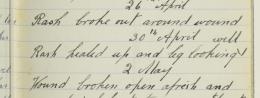 26th April
Rash broke out around wound
30th April well
Rash healed up and leg looking
2 May
Wound broken open afresh and